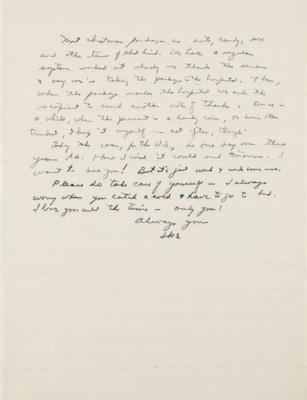 Most christmas packages are nuts, candy,
and other items of that kind. We have a regular
system worked out whereby we thank the sender
& say we're taking the package to the hospital. Then,
when the package reaches the hospital we ask the
recipient to send another note of thanks. Once in
a while, when the present is a handy one, or
trinket, I keep it myself — not often, though.
Today the war, for the U.S., is one day over three
years old. How I wish it would end tomorrow. I
want to see you! But it's just work & work some more.
Please do take care of yourself — I always
worry when you catch a cold & have to go to bed.
I love you all the time — only you!
Always your